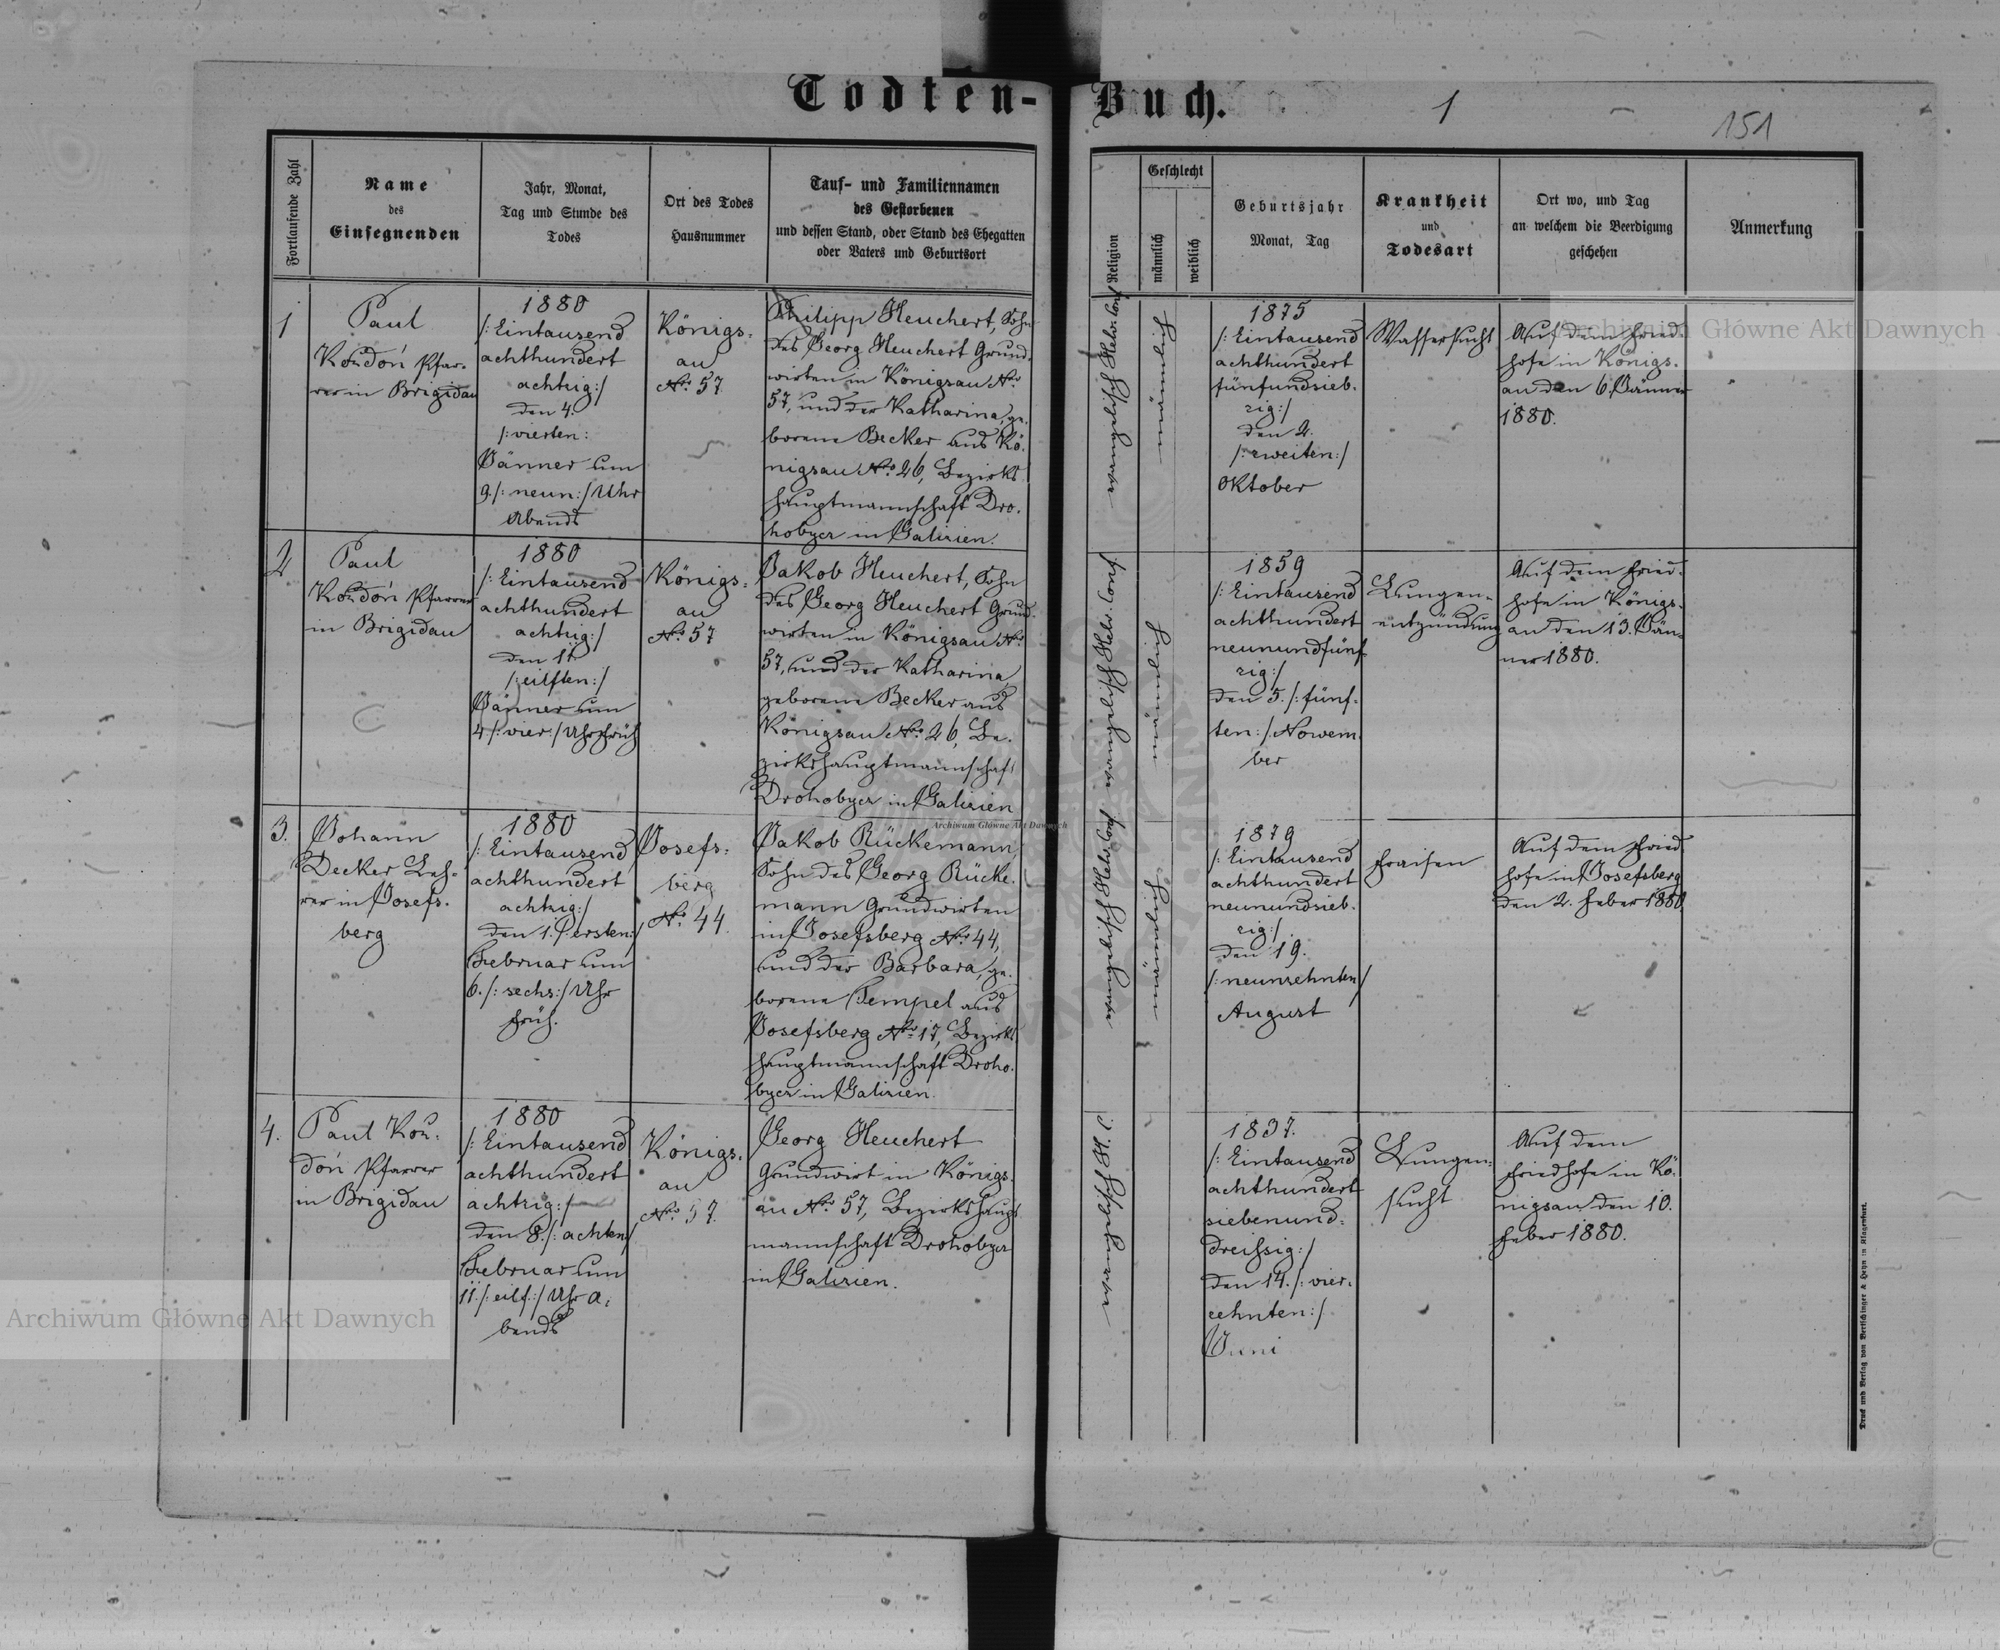 Todten-Buch.
1
151
Fortlaufende Zahl
Name
des
Einsegnenden
Jahr, Monat,
Tag und Stunde des
Todes
Ort des Todes
Hausnummer
Tauf- und Familiennamen
des Gestorbenen
und dessen Stand, oder Stand des Ehegatten
oder Vaters und Geburtsort
Religion
Geschlecht
männlich
weiblich
Geburtsjahr
Monat, Tag
Krankheit
und
Todesart
Ort wo, und Tag
an welchem die Beerdigung
geschehen
Anmerkung
1
Paul
Koždoń Pfar-
rer in Brigidau
1880
/: Eintausend
achthundert
achtzig :/
den 4.
/: vierten :
Jänner um
9 /: neun :/ Uhr
Abends
Königs-
au
No. 57
Philipp Heuchert, Sohn
des Georg Heuchert Grund-
wirten in Königsau No.
57, und der Katharina, ge-
borene Becker aus Kö-
nigsau No. 26, Bezirks
hauptmannschaft Dro-
hobycz in Galizien.
evangelisch Helv. Conf.
männlich
1875
/: Eintausend
achthundert
fünfundsieb-
zig :/
den 2.
/: zweiten :/
Oktober
Wassersucht
Auf dem Fried-
hofe in Königs-
au den 6 Jänner
1880.
2
Paul
Koždoń Pfarrer
in Brigidau
1880
/: Eintausend
achthundert
achtzig :/
den 11.
/: eilften :/
Jänner um
4 /: vier :/ Uhr Früh
Königs-
au
No. 57
Jakob Heuchert, Sohn
des Georg Heuchert Grund-
wirten in Königsau No.
57, und der Katharina,
geborene Becker aus
Königsau No. 26, Be-
zirkshauptmannschaft
Drohobycz in Galizien
evangelisch Helv. Conf.
männlich
1859
/: Eintausend
achthundert
neunundfünf-
zig :/
den 5. /: fünf-
ten :/ Nowem-
ber
Lungen-
entzündung
Auf dem Fried-
hofe in Königs-
au den 13. Jän-
ner 1880.
3.
Johann
Decker Leh-
rer in Josefs-
berg
1880
/: Eintausend
achthundert
achtzig :/
den 1. /: ersten :/
Februar um
6. /: sechs :/ Uhr
Früh.
Josefs-
berg
No. 44.
Jakob Rückemann,
Sohn des Georg Rücke-
mann Grundwirten
in Josefsberg No. 44,
und der Barbara, ge-
borene Tempel aus
Josefsberg No. 17, Bezirks
hauptmannschaft Droho-
bycz in Galizien.
evangelisch Helv. Conf.
männlich
1879
/: Eintausend
achthundert
neunundsieb-
zig :/
den 19.
/: neunzehnten /
August
Fraisen
Auf dem Fried
hofe in Josefsberg
den 2. Feber 1880
4.
Paul Kož-
doń Pfarrer
in Brigidau
1880
/: Eintausend
achthundert
achtzig :/
den 8. /: achten /
Februar um
11. /: eilf :/ Uhr A-
bends
Königs-
au
No. 57.
Georg Heuchert
Grundwirt in Königs-
au No. 57, Bezirkshaupt
mannschaft Drohobycz
in Galizien.
evangelisch H. C.
1837.
/: Eintausend
achthundert
siebenund-
dreissig :/
den 14. /: vier-
zehnten :/
Juni
Lungen-
sucht
Auf dem
Friedhofe in Kö-
nigsau den 10.
Feber 1880.
Druck und Verlag von Bertschinger & Heyn in Klagenfurt.
Archiwum Główne Akt Dawnych
Archiwum Główne Akt Dawnych
Archiwum Główne Akt Dawnych